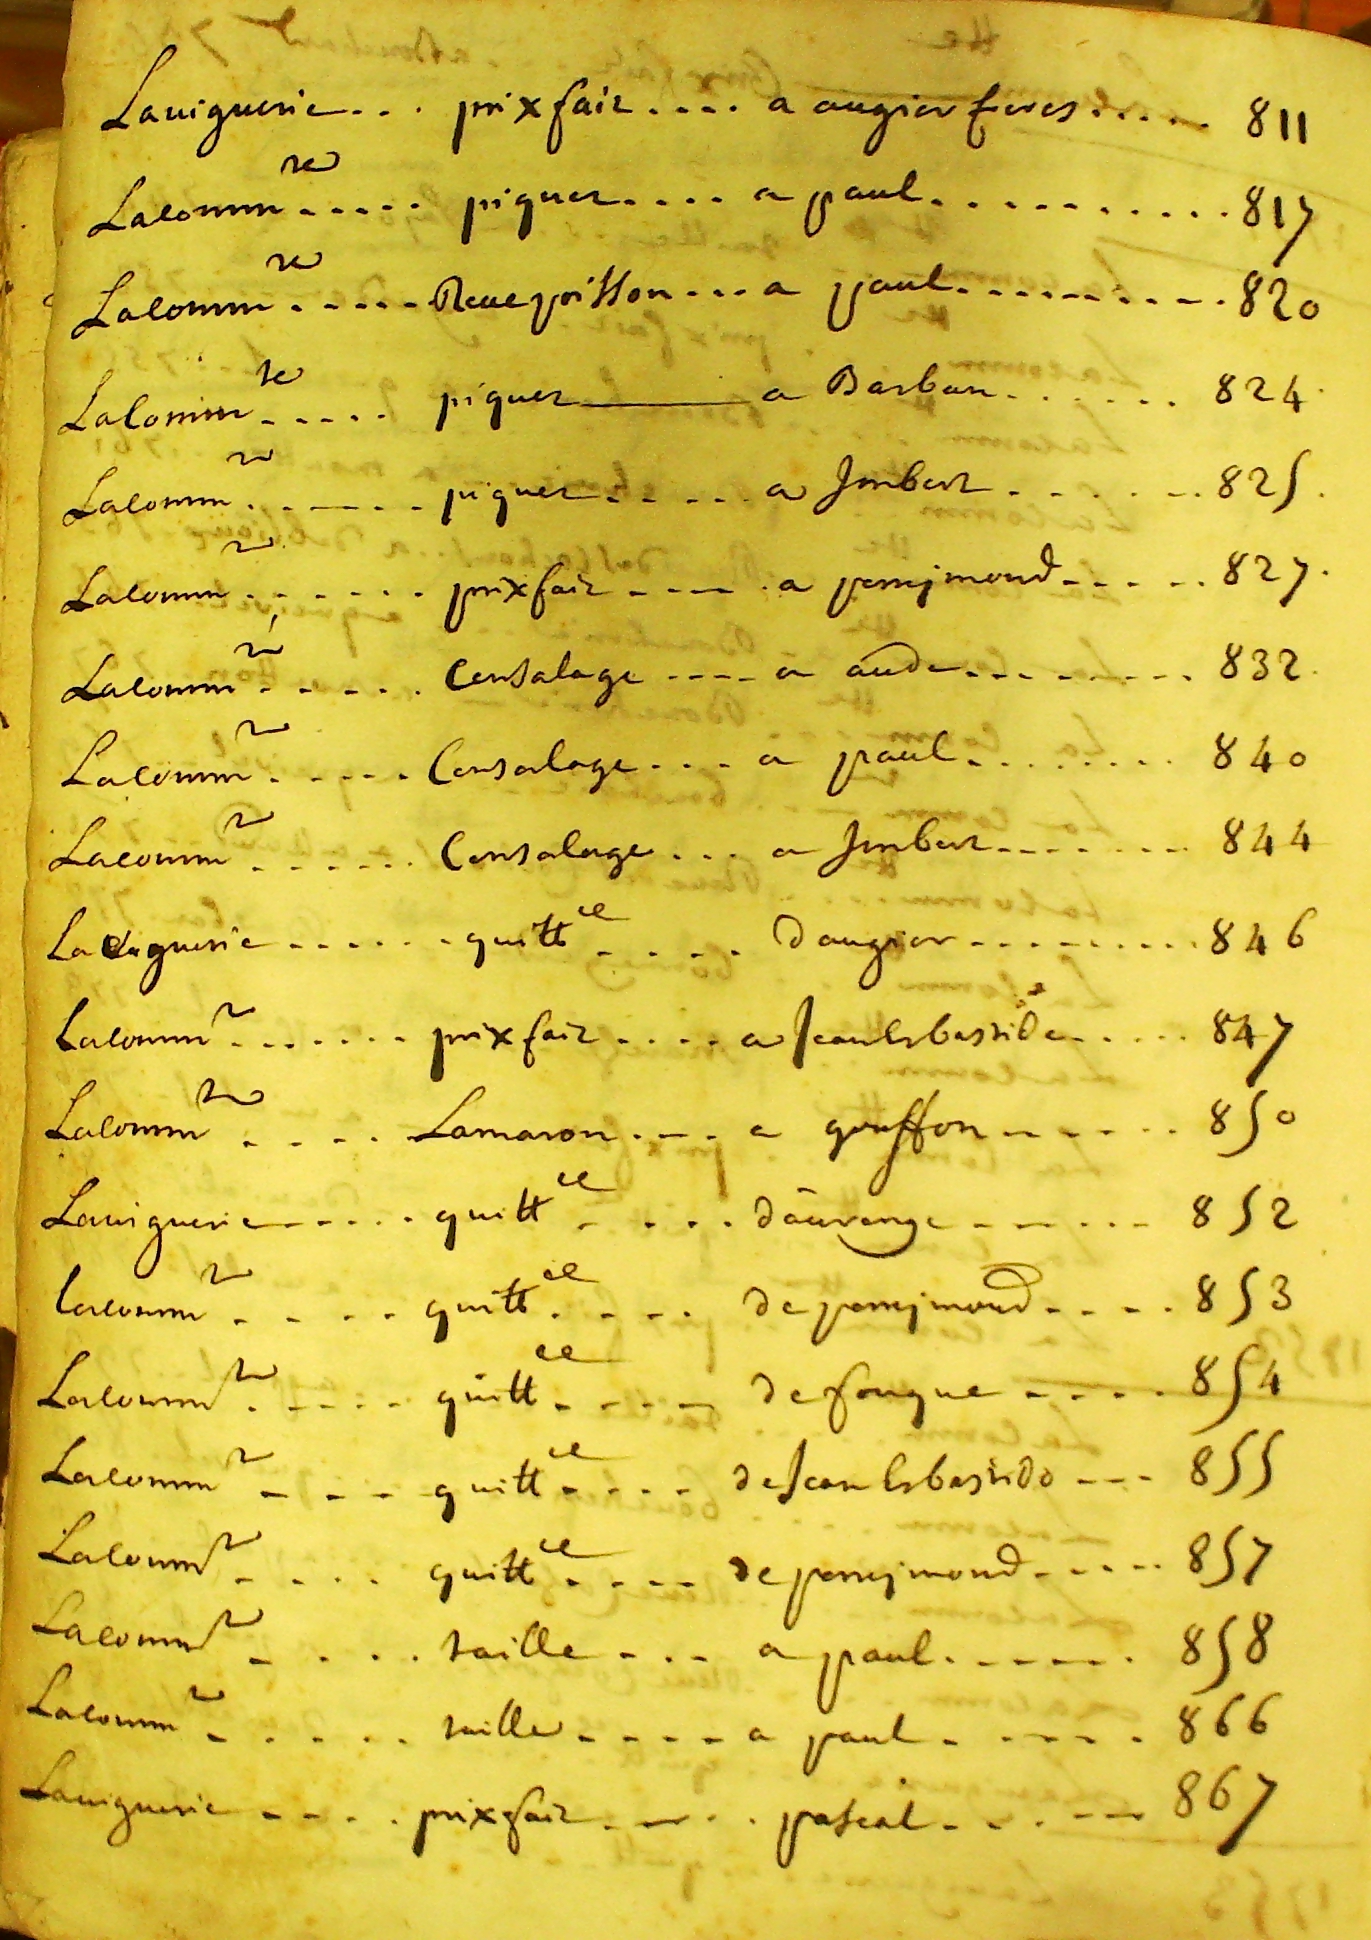 Lauiguerie... prixfait.... a augier freres..... 811
Lacomm^te..... piquet.... a paul........... 817
Lacomm^te..... Reuepoisson... a paul......... 820
Lacomm^te..... piquet a Barban....... 824
Lacomm^te....... piquet..... a Jmbert....... 825.
Lacomm^te....... prixfait.... a perrejmond..... 827.
Lacomm^te...... Censalage.... a aude........ 832
Lacomm^te..... Censalage... a paul........ 840
Lacomm^te...... Censalage... a Jmbert....... 844
Lauiguerie...... quitt^ce..... d'augier......... 846
Lacomm^te....... prixfait.... a Jean labastide..... 847
Lacomm^te.... Lamaron.... a gouffon...... 850
Lauiguerie..... quitt^ce..... d'aurenge...... 852
lacomm^te.... quitt^ce.... de perrejmond.... 853
Lacomm^te..... quitt^ce.... de fouque.... 854
Lacomm^te.... quitt^ce.... de Jean labastide... 855
Lacomm^te.... quitt^ce.... de perrejmond..... 857
Lacomm^te.... taille... a paul...... 858
Lacomm^te..... taille..... a paul..... 866
Lauiguerie.... prixfait.... pascal.... 867